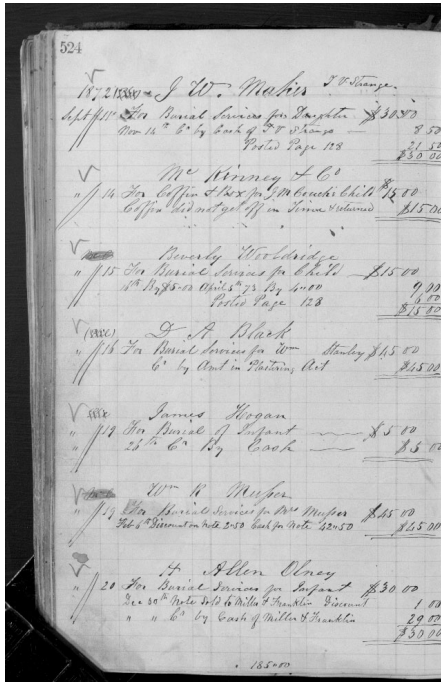 524
1872 J W. Maker T V Strange
Sept 11" For Burial Services for Daughter — $30.00
Nov 14th Cr by Cash of T V Strange — 8 50
Posted Page 128 21 50
$30 00
McKinney & Co
" 14 For Coffin & Box for J M Couch's Child $15 00
Coffin did not get off in Time & returned $15 00
Beverly Wooldridge
" 15 For Burial Services for Child — $15 00
By $5.00 April 5th 73 By 4.00 9 00
Posted Page 128 6 00
$15 00
D. A Black
" 18 For Burial Services for Wm Stanley $45 00
Cr by Amt in Plastering Act $45 00
James Hogan
" 19 For Burial of Infant — $5 00
" 26th Cr By Cash — $5 00
Wm R Musser
" 19 For Burial Services for Mrs Musser $45 00
Feb 6th Discount on Note 2.50 Cash for Note 42.50 $45 00
H Allen Olney
" 20 For Burial Services for Infant $30 00
Dec 30th Note Sold to Miller & Franklin Discount 1 00
" " Cr by Cash of Miller & Franklin 29 00
$30 00
185.00